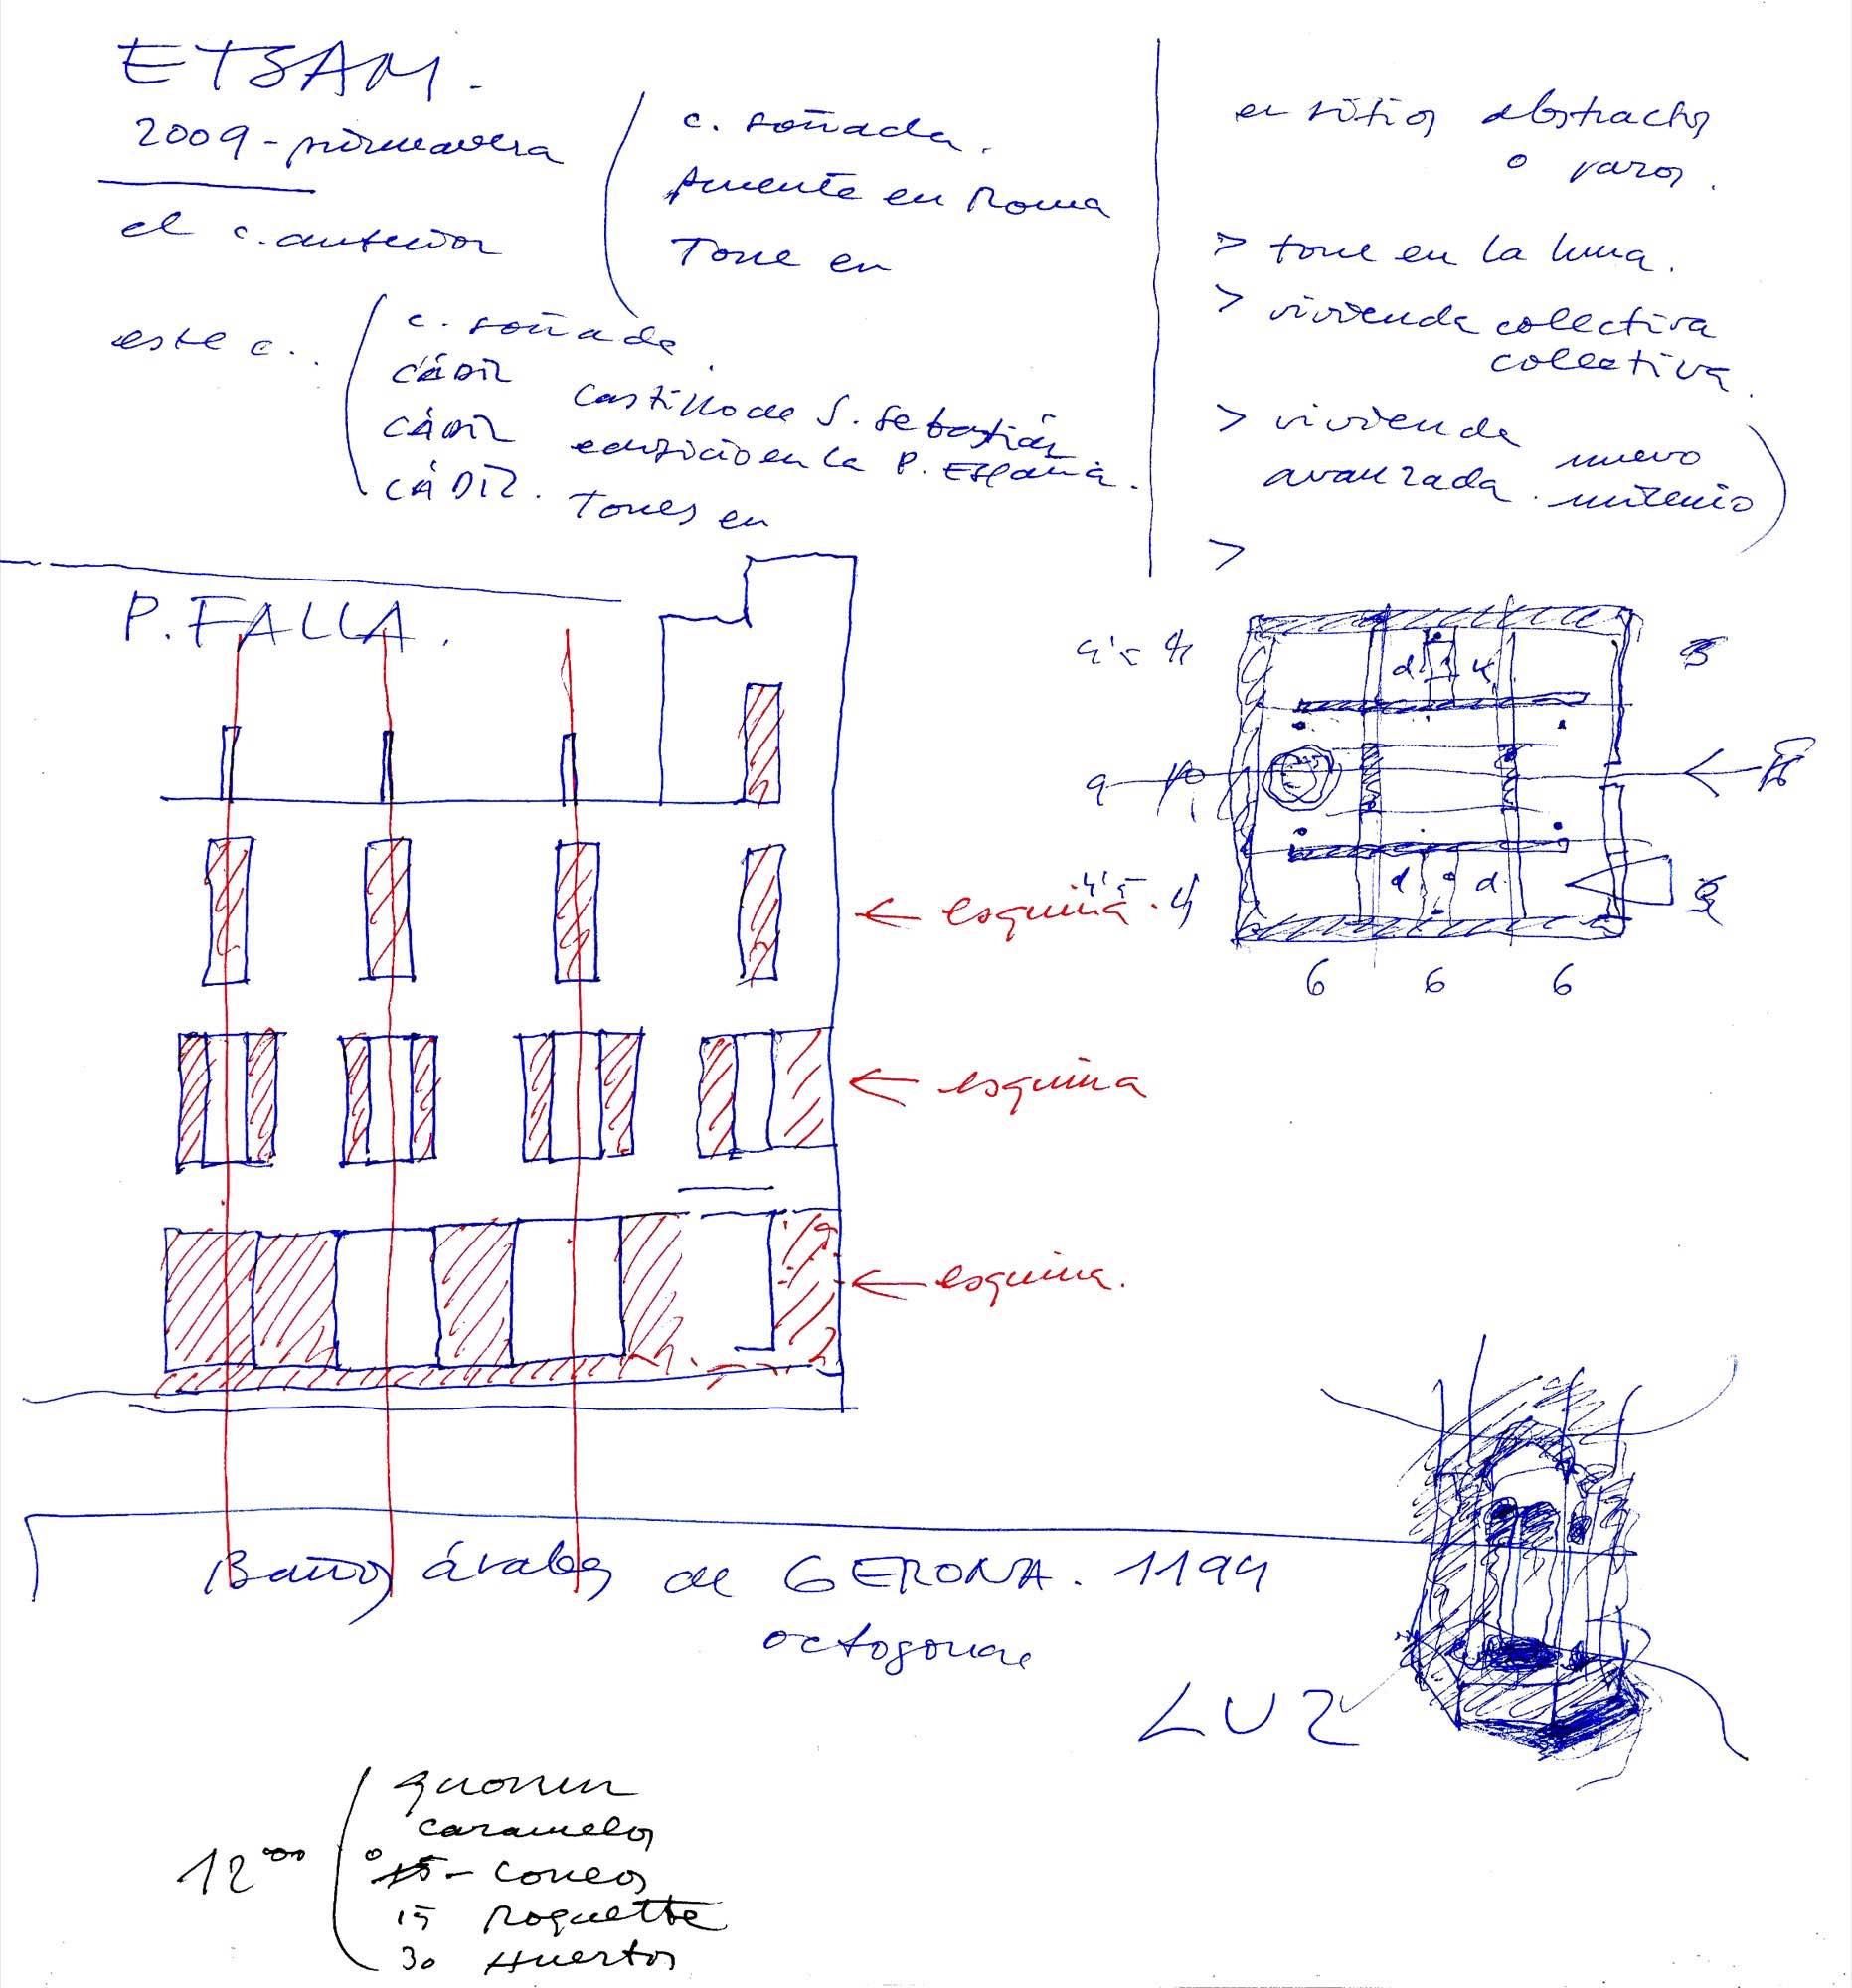 ETSAM.
2009 - primavera
el c. anterior
c. soñada.
Puente en Roma
Torre en
este c..
c. soñada.
CÁDIZ Castillo de S. Sebastián
CÁDIZ edificio en la P. España.
CÁDIZ. Torres en
en sitios abstractos
o raros.
> torre en la luna.
> vivienda colectiva
colectiva.
> vivienda
avanzada. nuevo
milenio
>
P. FALLA.
d
d d
6 6 6
← esquina
← esquina
← esquina.
Baños árabes de GERONA. 1194
octogonal
LUZ
12ºº
caramelos
15 - correos
15 Roquette
30 Huertos